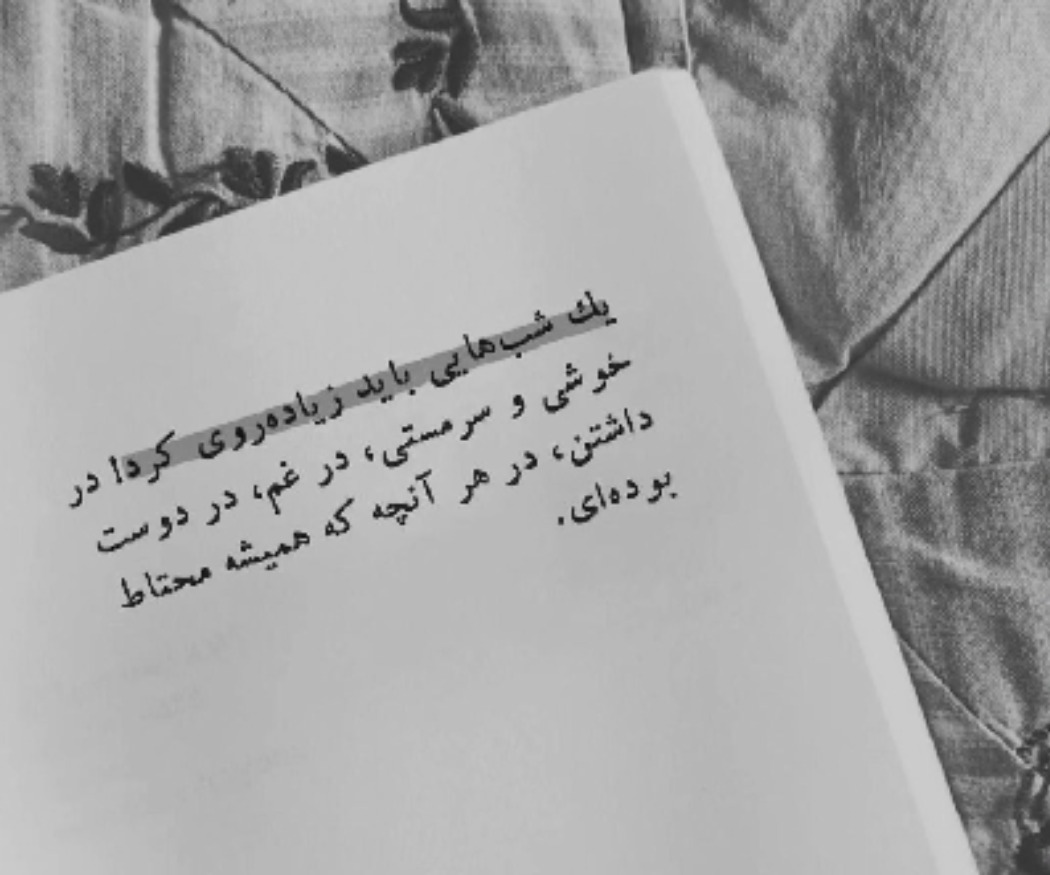 یك شب‌هایی باید زیاده‌روی کرد! در
خوشی و سرمستی، در غم، در دوست
داشتن، در هر آنچه که همیشه محتاط
بوده‌ای.